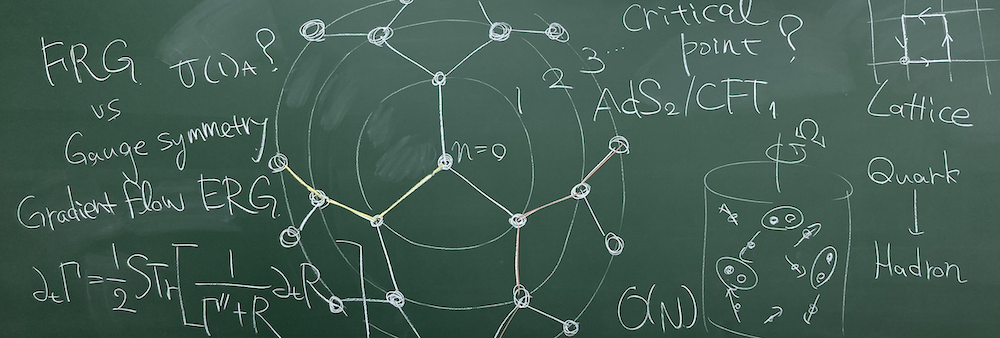 FRG
vs
Gauge symmetry
Gradient flow ERG
U(1)A?
∂tΓ=1/2 STr[1/(Γ''+R) ∂tR]
n=0
1
2
3...
Critical
point?
AdS2/CFT1
O(N)
Ω
Lattice
Quark
↓
Hadron